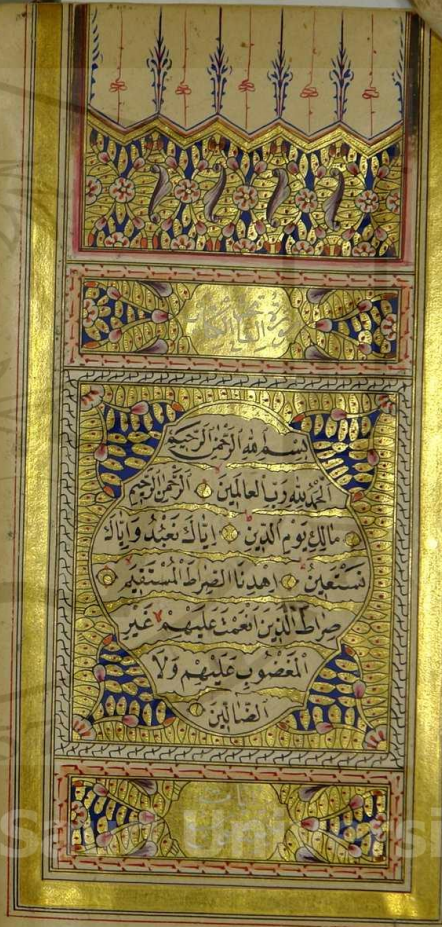 بسم الله الرحمن الرحيم
الحمد لله رب العالمين الرحمن الرحيم
مالك يوم الدين اياك نعبد واياك
نستعين اهدنا الصراط المستقيم
صراط الذين انعمت عليهم غير
المغضوب عليهم ولا
الضالين